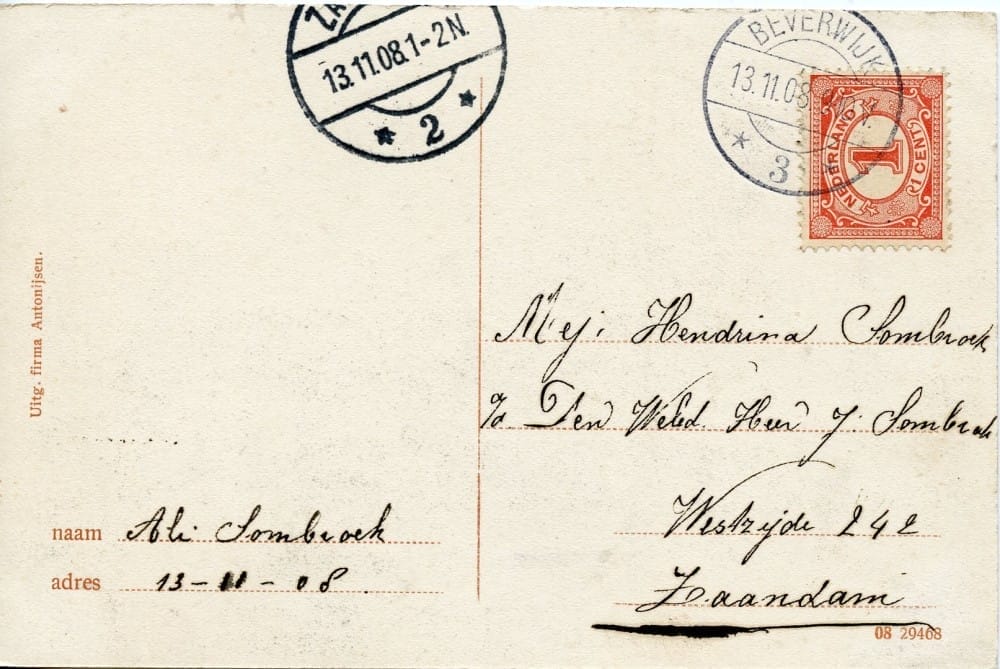 ZA
13.11.08.1-2N.
2
BEVERWIJK
13.11.08
3
NEDERLAND
1
1 CENT
Uitg. firma Antonijsen.
Mej. Hendrina Sombroek
p/a Den Weled. Heer J. Sombroek
Westzijde 242
Zaandam
naam Ali Sombroek
adres 13-11-08.
08 29468